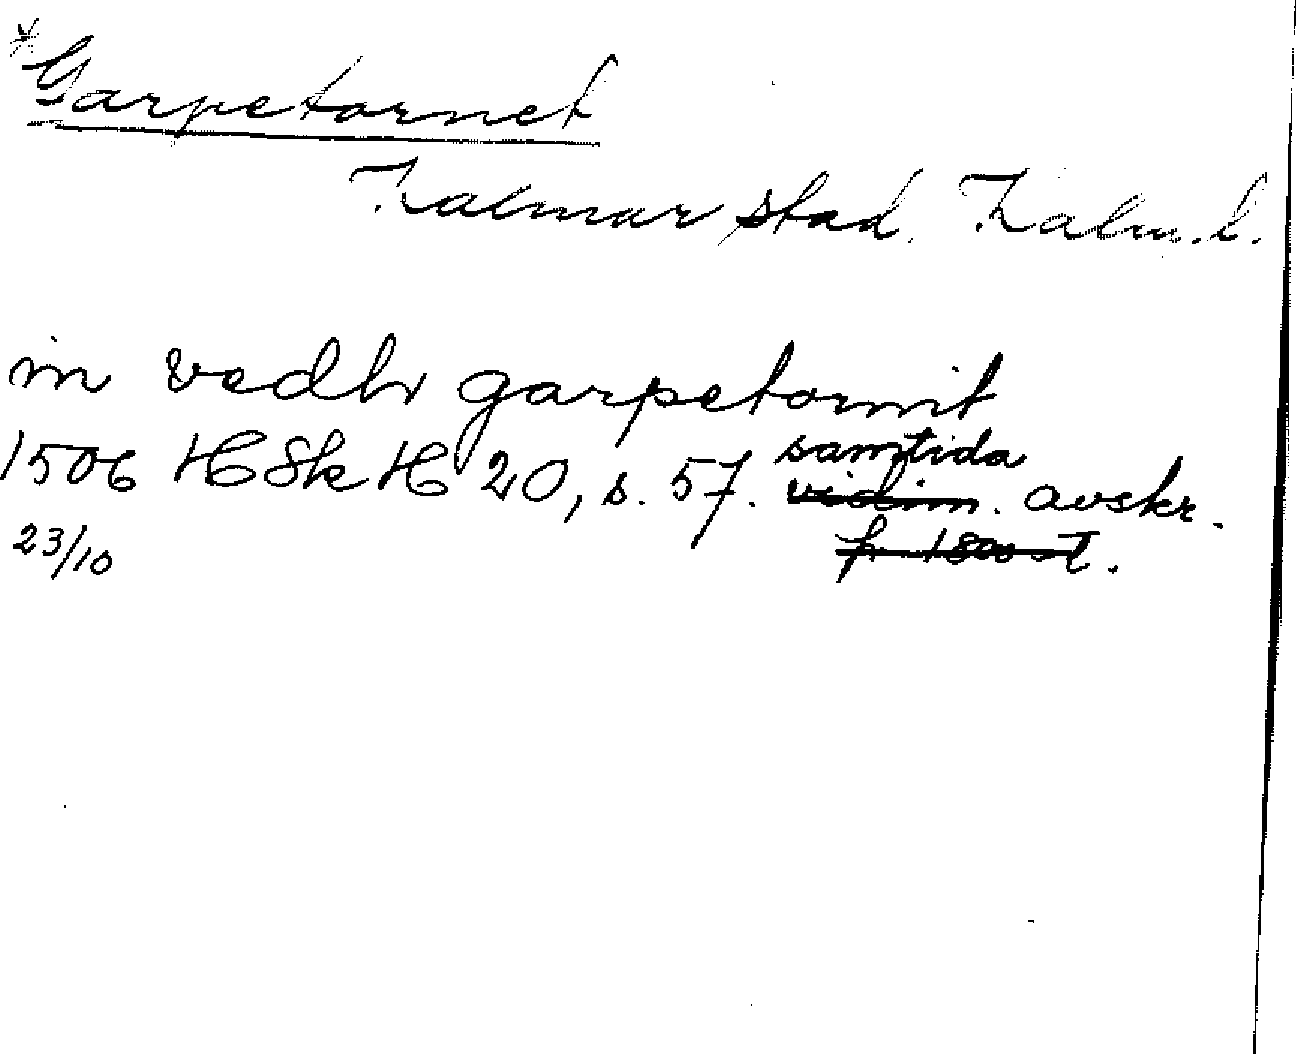 *Garpetornet
Kalmar stad. Kalm. l.
in vedh garpetornit
1506 HSkH 20, s. 57. samtida vidim. avskr.
23/10 fr 1800-t.